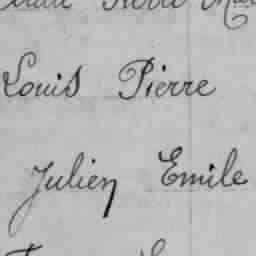 Louis Pierre
Julien Emile